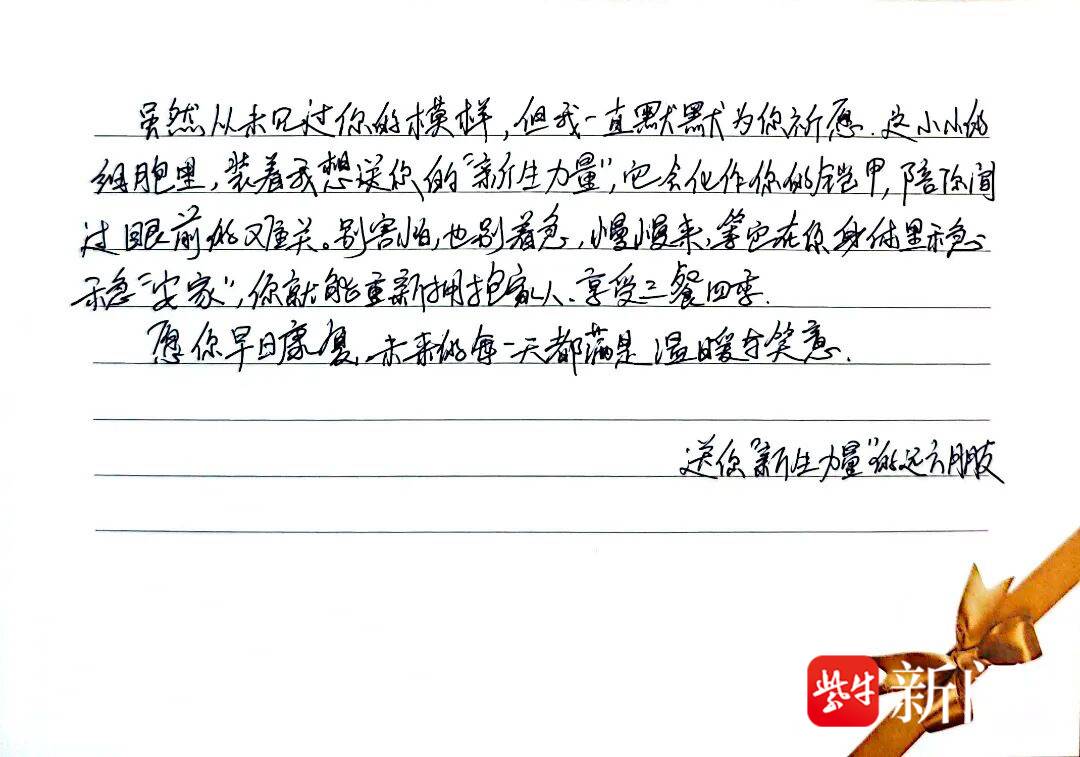 虽然从未见过你的模样，但我一直默默为你祈愿．这小小的
细胞里，装着我想送你的“新生力量”，它会化作你的铠甲，陪你闯
过眼前的难关。别害怕，也别着急，慢慢来，等它在你身体里稳稳
“安家”，你就能重新拥抱家人、享受三餐四季．
愿你早日康复，未来的每一天都满是温暖与笑意．
送你“新生力量”的远方朋友
紫牛新闻